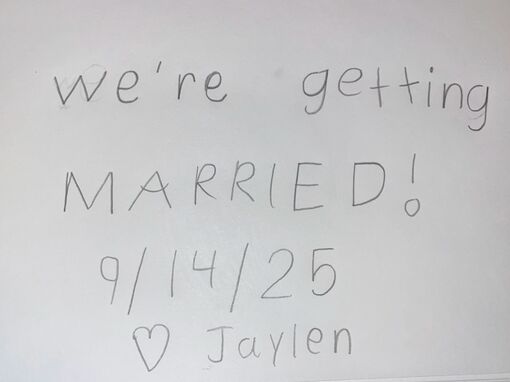 we're getting
MARRIED!
9/14/25
♡ Jaylen